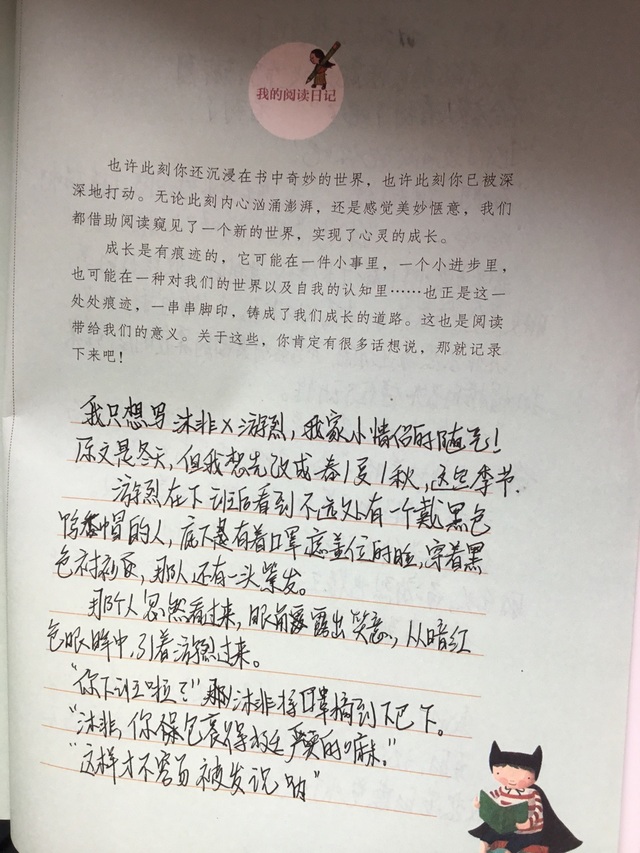 我的阅读日记
也许此刻你还沉浸在书中奇妙的世界，也许此刻你已被深
深地打动。无论此刻内心汹涌澎湃，还是感觉美妙惬意，我们
都借助阅读窥见了一个新的世界，实现了心灵的成长。
成长是有痕迹的，它可能在一件小事里，一个小进步里，
也可能在一种对我们的世界以及自我的认知里……也正是这一
处处痕迹，一串串脚印，铸成了我们成长的道路。这也是阅读
带给我们的意义。关于这些，你肯定有很多话想说，那就记录
下来吧！
我只想写沐非x游烈，我家小情侣的随笔！
原文是冬天，但我想先改成春/夏/秋，这些季节.
游烈在下班后看到不远处有一个戴黑色
鸭舌帽的人，底下是有着口罩遮盖住的脸，穿着黑
色衬衫，那人还有一头紫发。
那个人忽然看过来，眼角露出笑意，从暗红
色眼眸中，引着游烈过来。
“你下班啦？”沐非将口罩摘到下巴下。
“沐非，你保包裹得挺严实的嘛。”
“这样才不容易被发现呐”